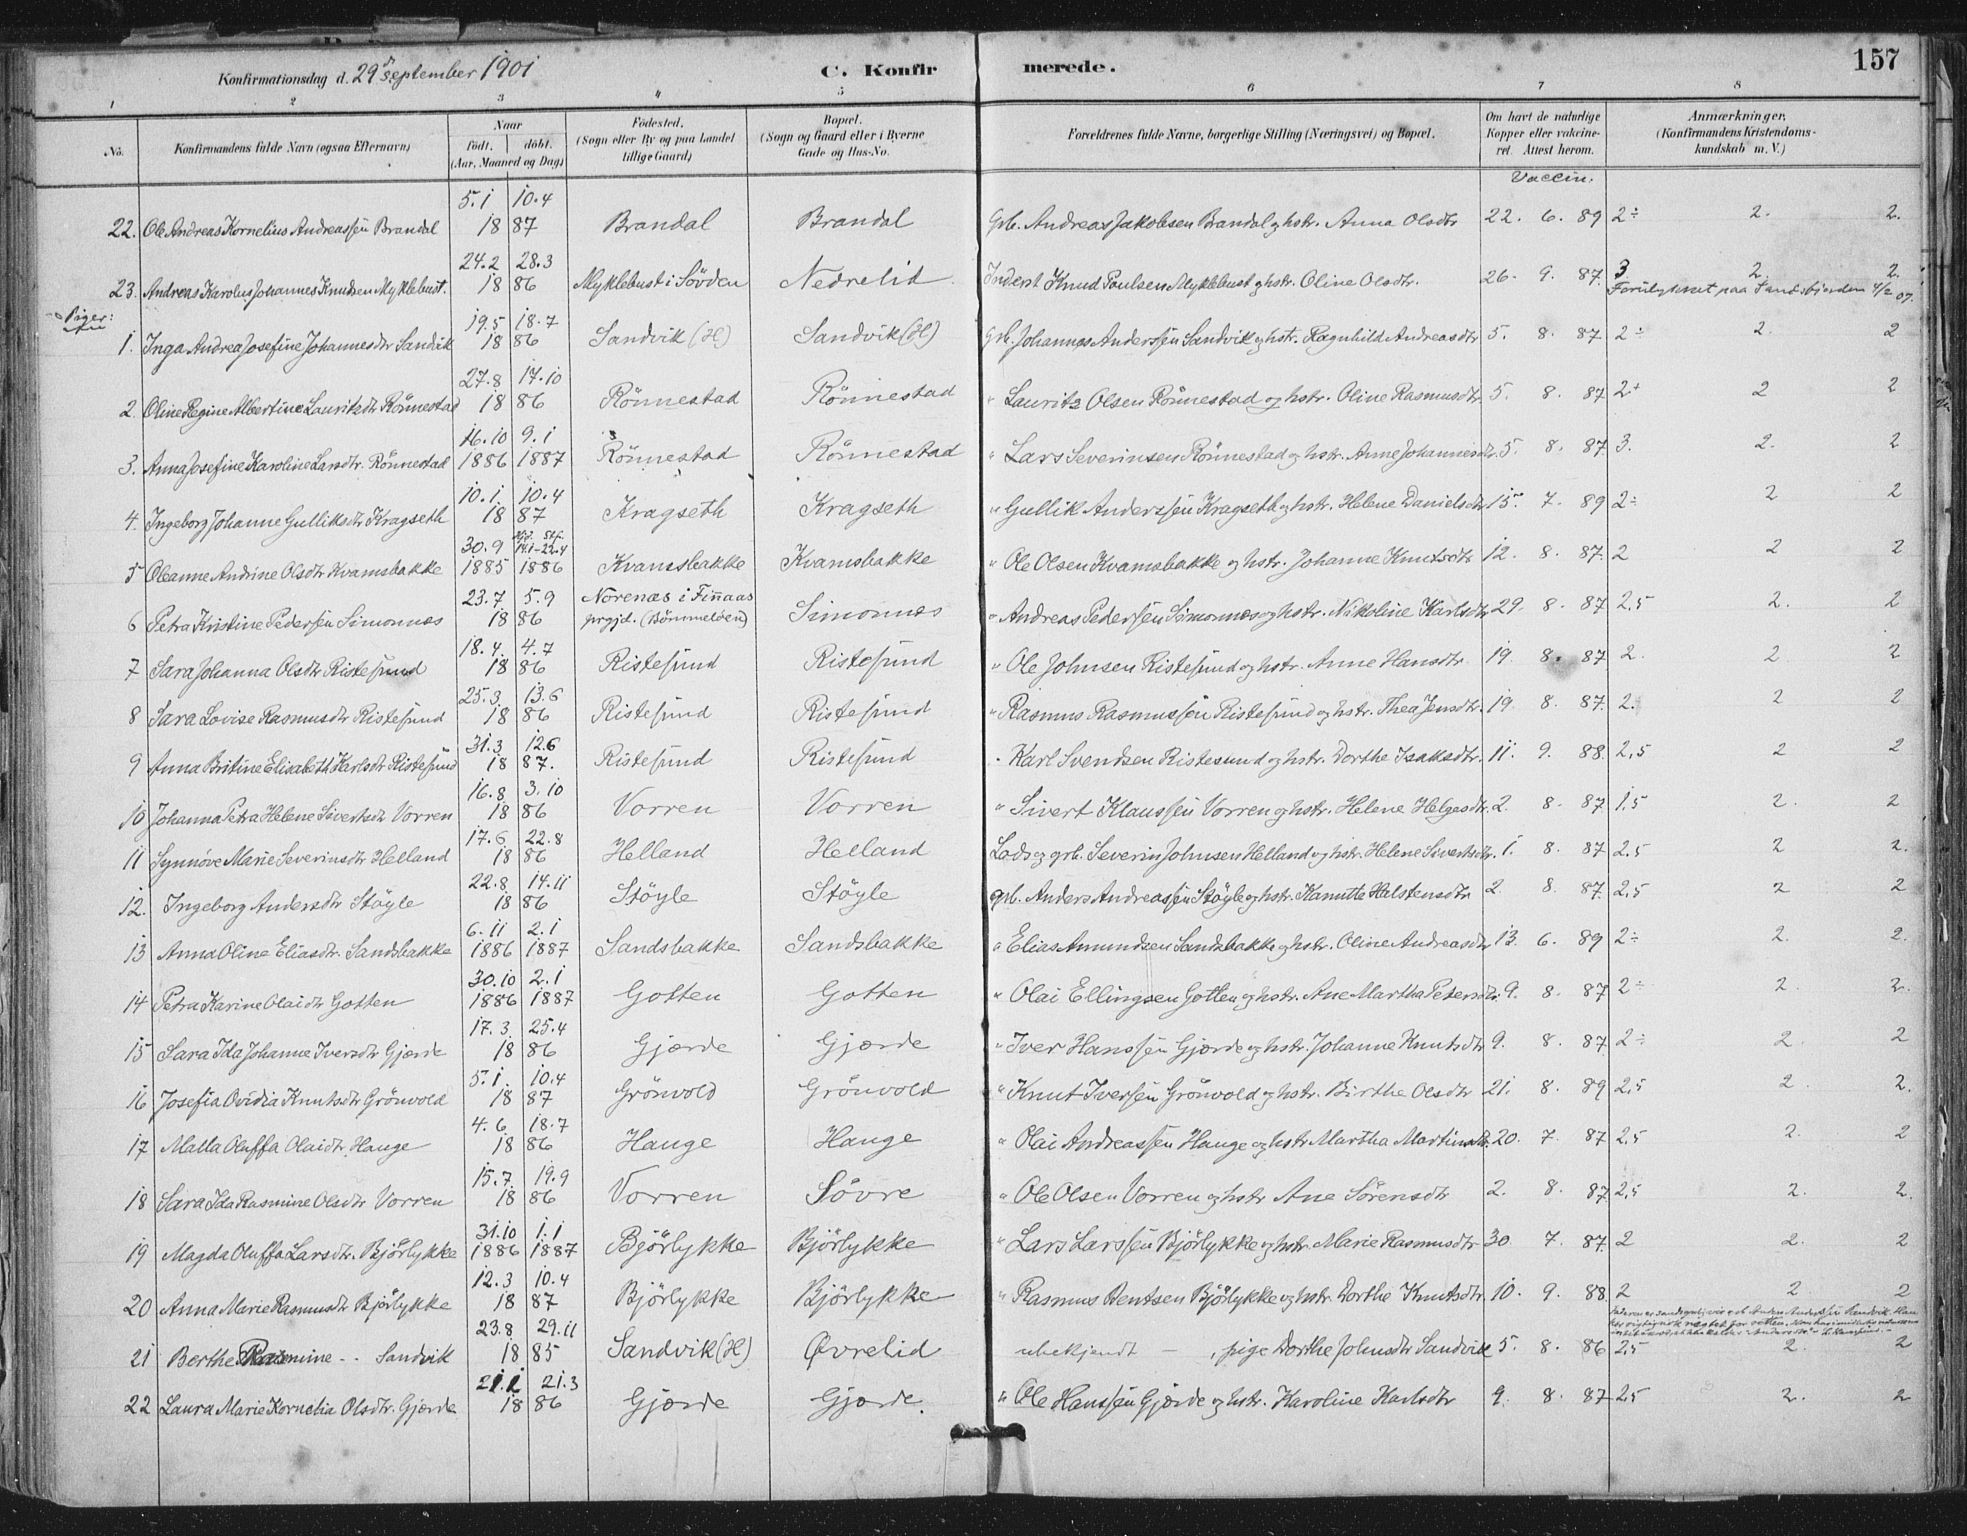 157
Konfirmationsdag d. 29de September 1901 C. Konfirmerede.
1 2 3 4 5 6 7 8
No. Konfirmandens fulde Navn (ogsaa Efternavn) Naar født. døbt. (Aar, Maaned og Dag) Födested. (Sogn eller By og paa Landet tillige Gaard) Bopæl. (Sogn og Gaard eller i Byerne Gade og Hus-No. Forældrenes fulde Navne, borgerlige Stilling (Næringsvei) og Bopæl. Om havt de naturlige Kopper eller vakcineret. Attest herom. Anmærkninger, (Konfirmandens Kristendomskundskab m. V.)
Vaccin.
5.1 10.4
22. Ole Andreas Kornelius Andreassen Brandal 18 87 Brandal Brandal Grb. Andreas Jakobsen Brandal og hstr. Anna Olsdtr 22. 6. 89 2÷ 2. 2.
24.2 28.3
23. Andreas Karolus Johannes Knudsen Myklebust. 18 86 Myklebust i Sövden Nedrelid Inderst Knud Poulsen Myklebust og hstr. Oline Olsdtr. 26. 9. 87. 3 2. 2.
Forulykket paa Sandsfjorden 4/2 07.
Piger:
19.5 18.7
1. Inga Andrea Josefine Johannesdtr Sandvik 18 86 Sandvik (H) Sandvik (H) Grb. Johannes Anderssen Sandvik og hstr. Ragnhild Andreasdtr 5. 8. 87. 2÷ 2. 2
27.8 17.10
2. Oline Regine Albertine Lauritsdtr Rönnestad 18 86 Rönnestad Rönnestad " Lauritz Olsen Rönnestad og hstr. Oline Rasmusdtr. 5. 8. 87 2+ 2 2
16.10 9.1
3. Anna Josefine Karoline Larsdtr. Rönnestad 1886 1887 Rönnestad Rönnestad " Lars Severinsen Rönnestad og hstr. Anne Johannesdtr. 5. 8. 87. 3. 2. 2
10.1 10.4
4. Ingeborg Johanne Gulliksdtr Kragseth 18 87 Kragseth Kragseth " Gullik Anderssen Kragseth og hstr. Helene Danielsdtr 15. 7. 89 2÷ 2 2
30.9 14.1-22.4
5 Oleanne Andrine Olsdtr Kvamsbakke 1885 1886 Kvamsbakke Kvamsbakke " Ole Olsen Kvamsbakke og hstr. Johanne Knutsdtr 12. 8. 87. 2 2 2
23.7 5.9 Norenæs i Finnaas
6 Petra Kristine Pedersen Simonnæs 18 86 prgjd. (Bömmelöen) Simonnæs " Andreas Pedersen Simonnæs og hstr. Nikoline Karlsdtr 29. 8. 87 2,5 2. 2
18.4. 4.7
7 Sara Johanna Olsdtr Ristesund 18 86 Ristesund Ristesund " Ole Johnsen Ristesund og hstr. Anne Hansdtr 19. 8. 87 2. 2 2
25.3. 13.6
8 Sara Lovise Rasmusdtr Ristesund 18 86 Ristesund Ristesund " Rasmus Rasmussen Ristesund og hstr. Thea Jensdtr. 19. 8. 87. 2. 2 2
31.3 12.6
9 Anna Britine Elisabeth Karlsdtr Ristesund 18 87. Ristesund Ristesund " Karl Svendsen Ristesund og hstr. Dorthe Isaksdtr. 11. 9. 88. 2,5 2 2
16.8 3.10
10 Johanna Petra Helene Sivertsdtr Vorren 18 86 Vorren Vorren " Sivert Klaussen Vorren og hstr. Helene Helgesdtr. 2. 8. 87 1,5 2. 2
17.6 22.8
11 Synnöve Marie Severinsdtr Helland 18 86 Helland Helland Lods og grb. Severin Johnsen Helland og hstr. Helene Sivertsdtr. 1. 8. 87 2,5 2 2.
22.8 14.11
12. Ingeborg Andersdtr Stöyle 18 86 Stöyle Stöyle grb. Anders Andreassen Stöyle og hstr. Kanutte Halstensdtr 2. 8. 87. 2,5 2 2
6.11 2.1
13 Anna Oline Eliasdtr. Sandsbakke 1886 1887 Sandsbakke Sandsbakke " Elias Amundsen Sandsbakke og hstr. Oline Andreasdtr 13. 6. 89 2÷ 2. 2.
30.10 2.1
14 Petra Karine Olaidtr Gotten 1886 1887 Gotten Gotten " Olai Ellingsen Gotten og hstr. Ane Martha Petersdtr. 9. 8. 87 2÷ 2. 2.
17.3. 25.4
15 Sara Ida Johanne Iversdtr Gjærde 18 86 Gjærde Gjærde " Iver Hanssen Gjærde og hstr. Johanne Knutsdtr 9. 8. 87 2÷ 2. 2
5.1. 10.4
16 Josefia Ovidia Knutsdtr Grönvold 18 87 Grönvold Grönvold " Knut Iversen Grönvold og hstr. Birthe Olsdtr 21. 8. 89 2,5 2. 2.
4.6. 18.7
17 Malla Oluffa Olaidtr. Hauge 18 86 Hauge Hauge " Olai Andreassen Hauge og hstr Martha Martinsdtr. 20. 7. 87 2,5 2. 2
15.7. 19.9
18 Sara Ida Rasmine Olsdtr Vorren 18 86 Vorren Sövre " Ole Olsen Vorren og hstr Ane Sörensdtr 2. 8. 87 2,5 2. 2.
31.10 1.1
19 Magda Oluffa Larsdtr. Bjørlykke 1886 1887 Bjørlykke Bjørlykke " Lars Larssen Bjørlykke og hstr. Marie Rasmusdtr 30. 7. 87. 2 2. 2
12.3 10.4
20 Anna Marie Rasmusdtr Bjørlykke 18 87 Bjørlykke Bjørlykke " Rasmus Bentsen Bjørlykke og hstr. Dorthe Knutsdtr. 10. 9. 88 2 2. 2
23.8 29.11
21 Berthe Rasmine -- Sandvik 18 85 Sandvik (H) Øvrelid ubekjendt — , pige Dorthe Johnsdtr Sandvik 5. 8. 86 2,5 2. 2
21.1 21.3
22 Laura Marie Kornelia Olsdtr. Gjærde 18 86 Gjærde Gjærde. " Ole Hanssen Gjærde og hstr. Karoline Karlsdtr 9. 8. 87 2,5 2. 2